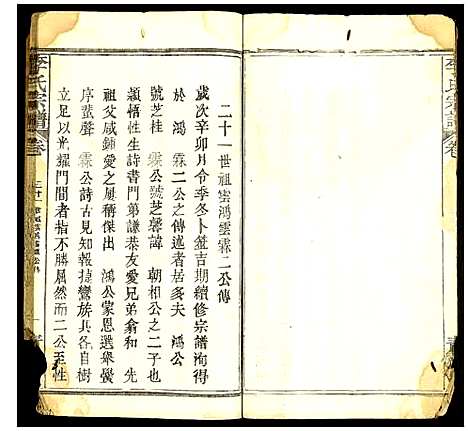 二十一世祖雲鴻雲霖二公傳
歲次辛卯月令季冬卜簽吉期續修宗譜洵得
於 鴻 霖二公之傳述者居多夫 鴻公
號芝桂 霖公號芝馨諱 朝相公之二子也
穎悟性生詩書門第謙恭友愛兄弟翕和 先
祖父咸鍾愛之屢稱傑出 鴻公家恩選舉
序蜚聲 霖公詩古見知報捷族兵各自樹
立足以光耀門閭者指不勝屈然而二公至性
李氏宗譜 卷
李氏宗譜 卷